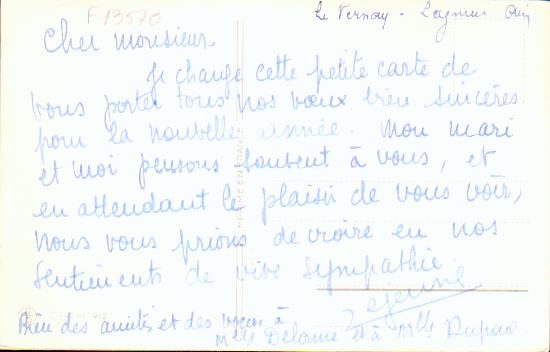 F13570
Le Vernay - Leymen Ain
Cher monsieur
Je charge cette petite carte de
vous porter tous nos vœux bien sincères
pour la nouvelle année. Mon mari
et moi pensons souvent à vous, et
en attendant le plaisir de vous voir,
nous vous prions de croire en nos
sentiments de vive sympathie.
Lejeune
Bien des amitiés et des vœux à
Melle Delorme et à Mlle Dupau